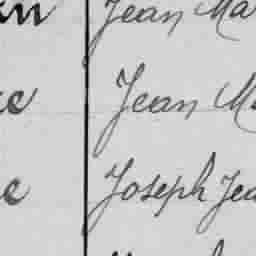 Jean Ma
Jean M
Joseph Jea